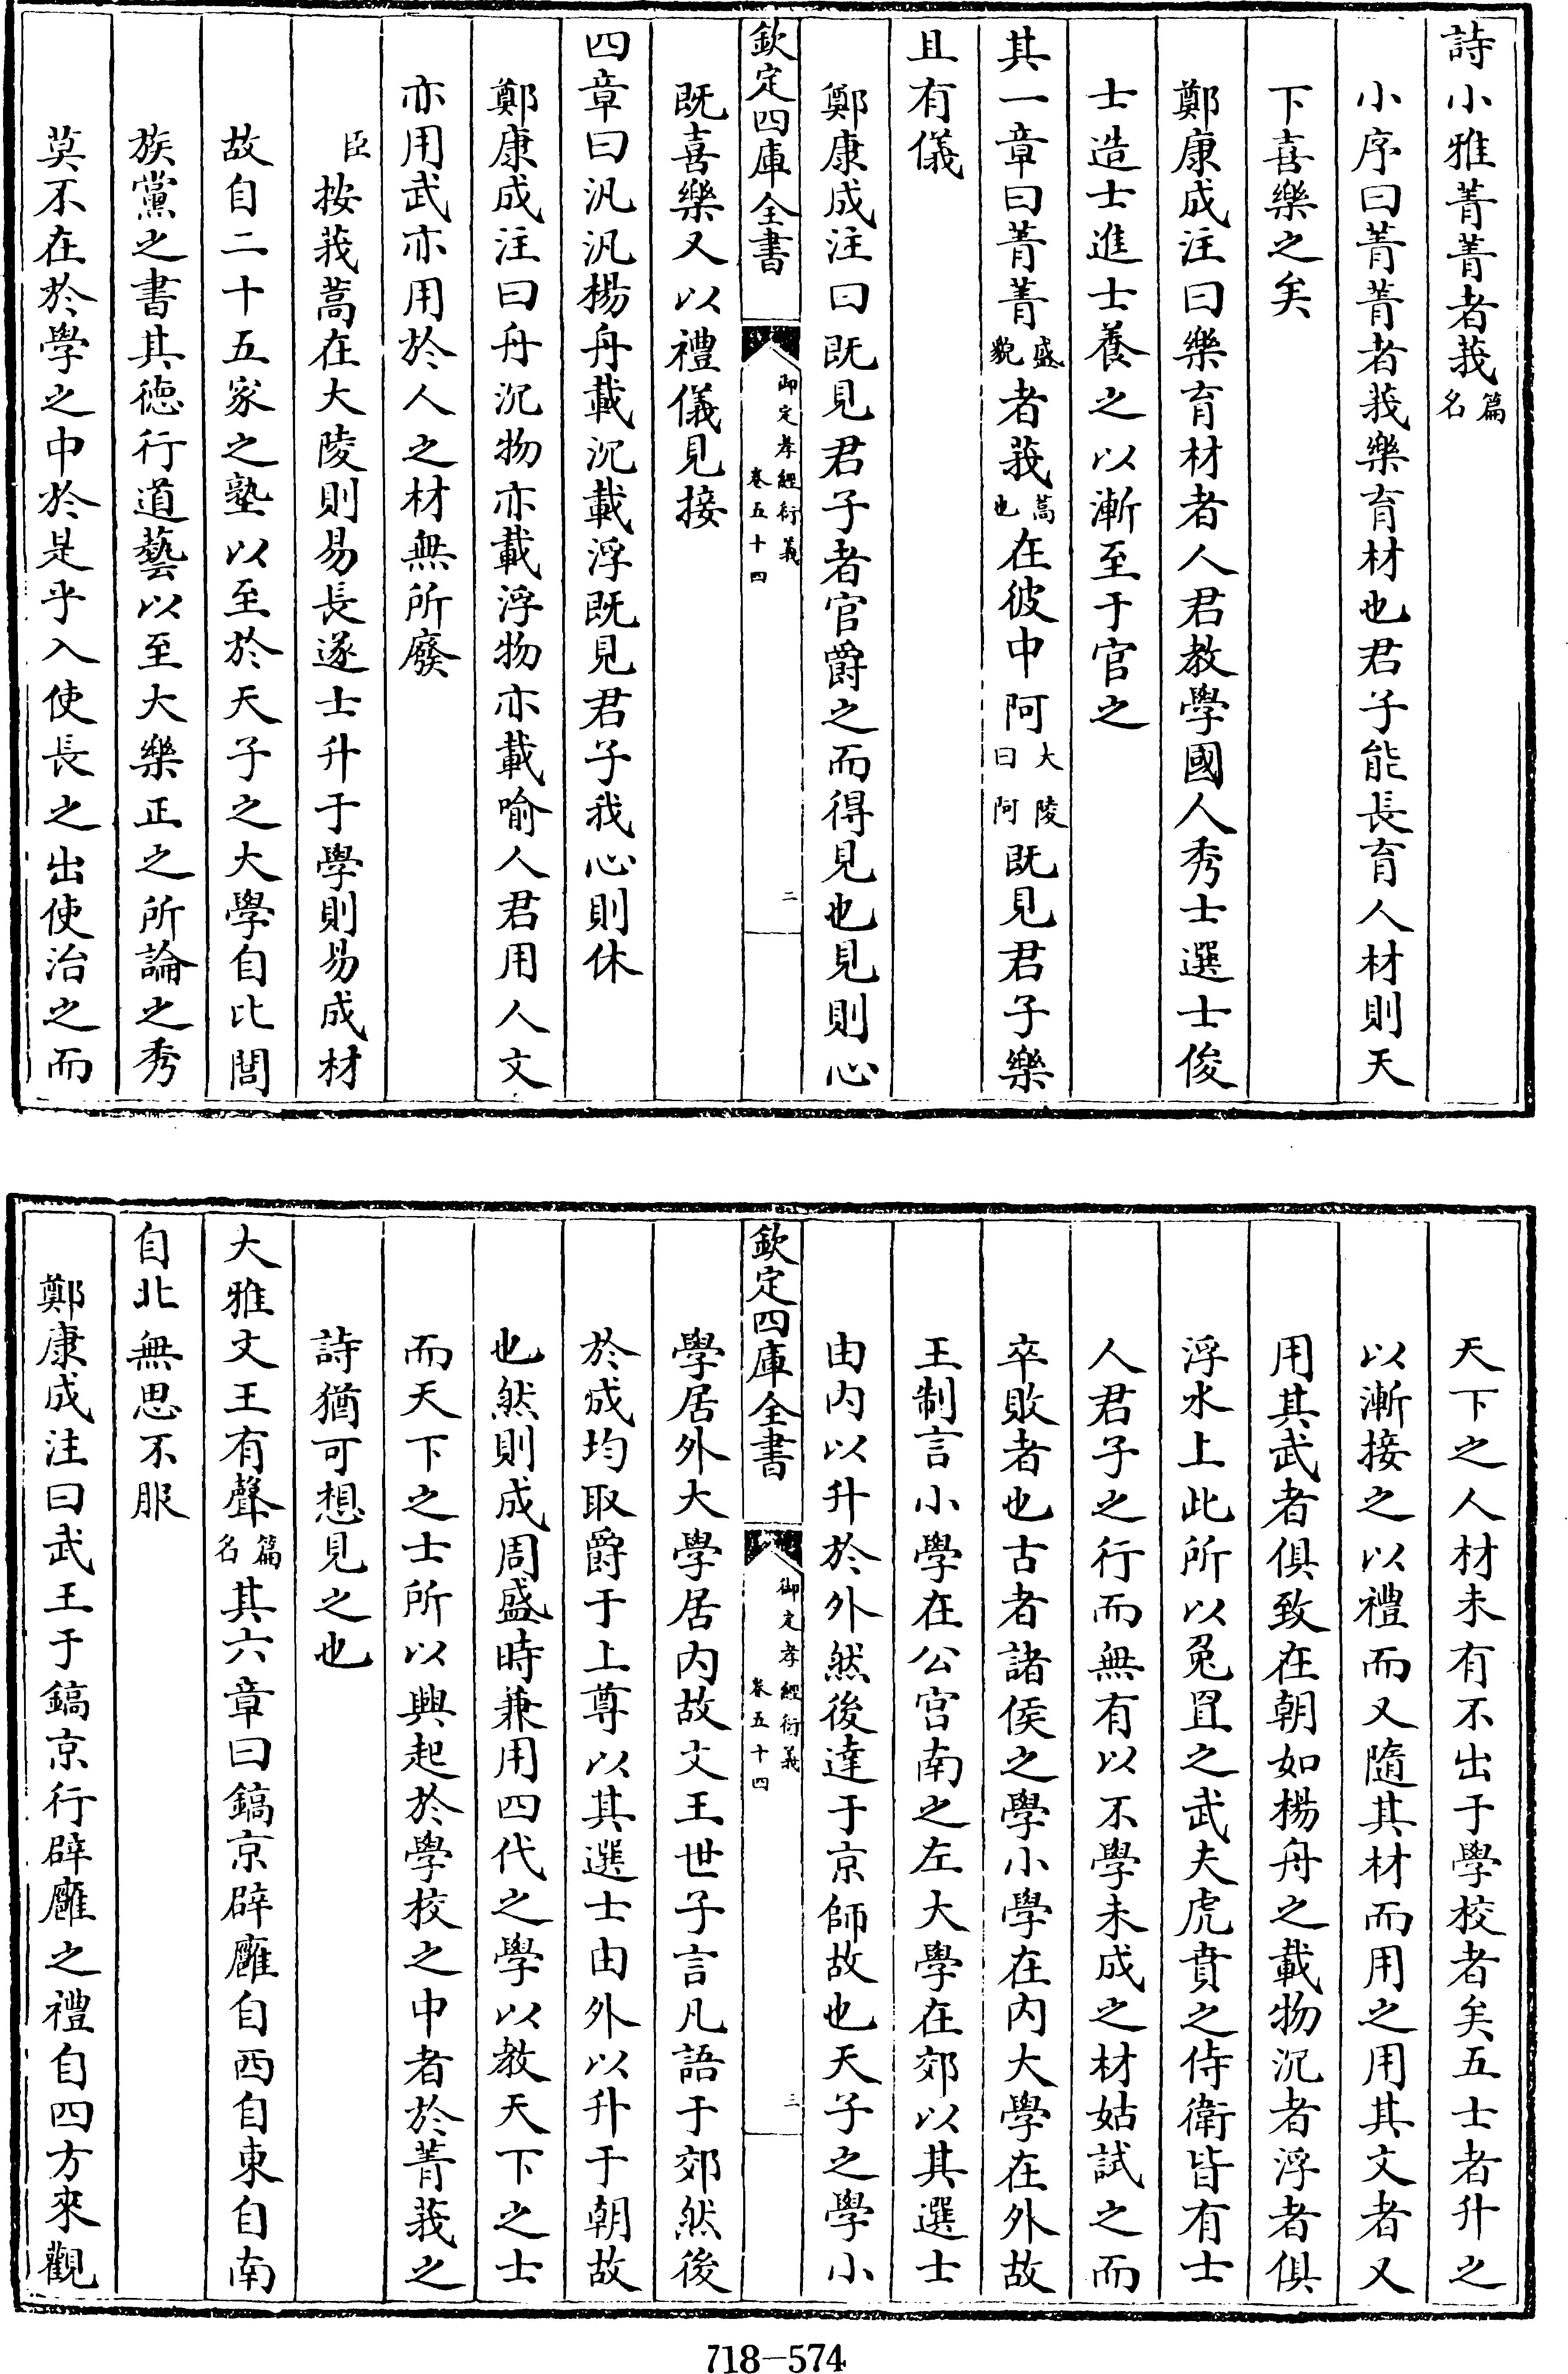 詩小雅菁菁者莪篇名
小序曰菁菁者莪樂育材也君子能長育人材則天
下喜樂之矣
鄭康成注曰樂育材者人君教學國人秀士選士俊
士造士進士養之以漸至于官之
其一章曰菁菁盛貌者莪蒿也在彼中阿大陵曰阿既見君子樂
且有儀
鄭康成注曰既見君子者官爵之而得見也見則心
欽定四庫全書
御定孝經衍義
卷五十四
二
既喜樂又以禮儀見接
四章曰汎汎楊舟載沉載浮既見君子我心則休
鄭康成注曰舟沉物亦載浮物亦載喻人君用人文
亦用武亦用於人之材無所廢
臣按莪蒿在大陵則易長遂士升于學則易成材
故自二十五家之塾以至於天子之大學自比閭
族黨之書其德行道藝以至大樂正之所論之秀
莫不在於學之中於是乎入使長之出使治之而
天下之人材未有不出于學校者矣五士者升之
以漸接之以禮而又隨其材而用之用其文者又
用其武者俱致在朝如楊舟之載物沉者浮者俱
浮水上此所以兔罝之武夫虎賁之侍衛皆有士
人君子之行而無有以不學未成之材姑試之而
卒敗者也古者諸侯之學小學在內大學在外故
王制言小學在公宮南之左大學在郊以其選士
由內以升於外然後達于京師故也天子之學小
欽定四庫全書
御定孝經衍義
卷五十四
三
學居外大學居內故文王世子言凡語于郊然後
於成均取爵于上尊以其選士由外以升于朝故
也然則成周盛時兼用四代之學以教天下之士
而天下之士所以興起於學校之中者於菁莪之
詩猶可想見之也
大雅文王有聲篇名其六章曰鎬京辟廱自西自東自南
自北無思不服
鄭康成注曰武王于鎬京行辟廱之禮自四方來觀
718-574